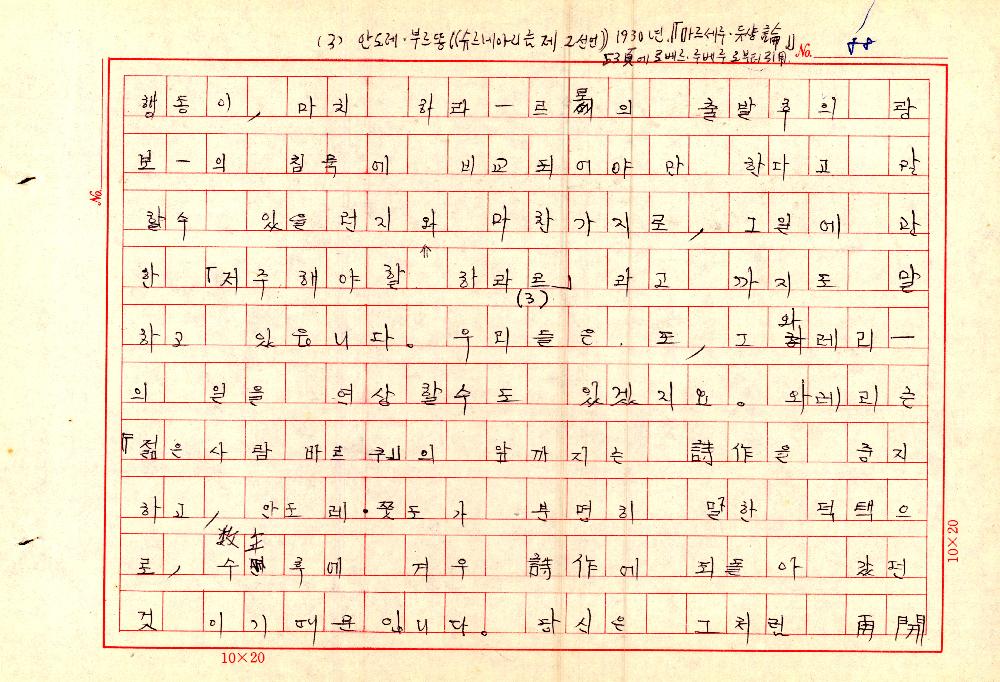 (3) 안도레·부르똥((슈르레아리슴 제 2선언)) 1930년.『마르세루·듀샹論』
53頁에 로베르·루베루로부터 引用
No. 88
행동이, 마치 하라ー르의 출발후의
보ー의 침묵에 비교되어야만 한다고 말
할수 있을런지와 마찬가지로, 그일에 관
한 「저주해야할 하라르」라고 까지도 말
(3)
하고 있읍니다。 우리들은 또, 그 와레리ー
의 일을 연상할수도 있겠지요。 와레리는
『젊은 사람 바르크』의 앞까지는 詩作을 중지
하고, 안도레·쫏도가 분명히 말한 덕택으
로, 数年후에 겨우 詩作에 되돌아 갔던
것이기 때문입니다。 당신은 그처럼 再開
No.
10×20
10×20